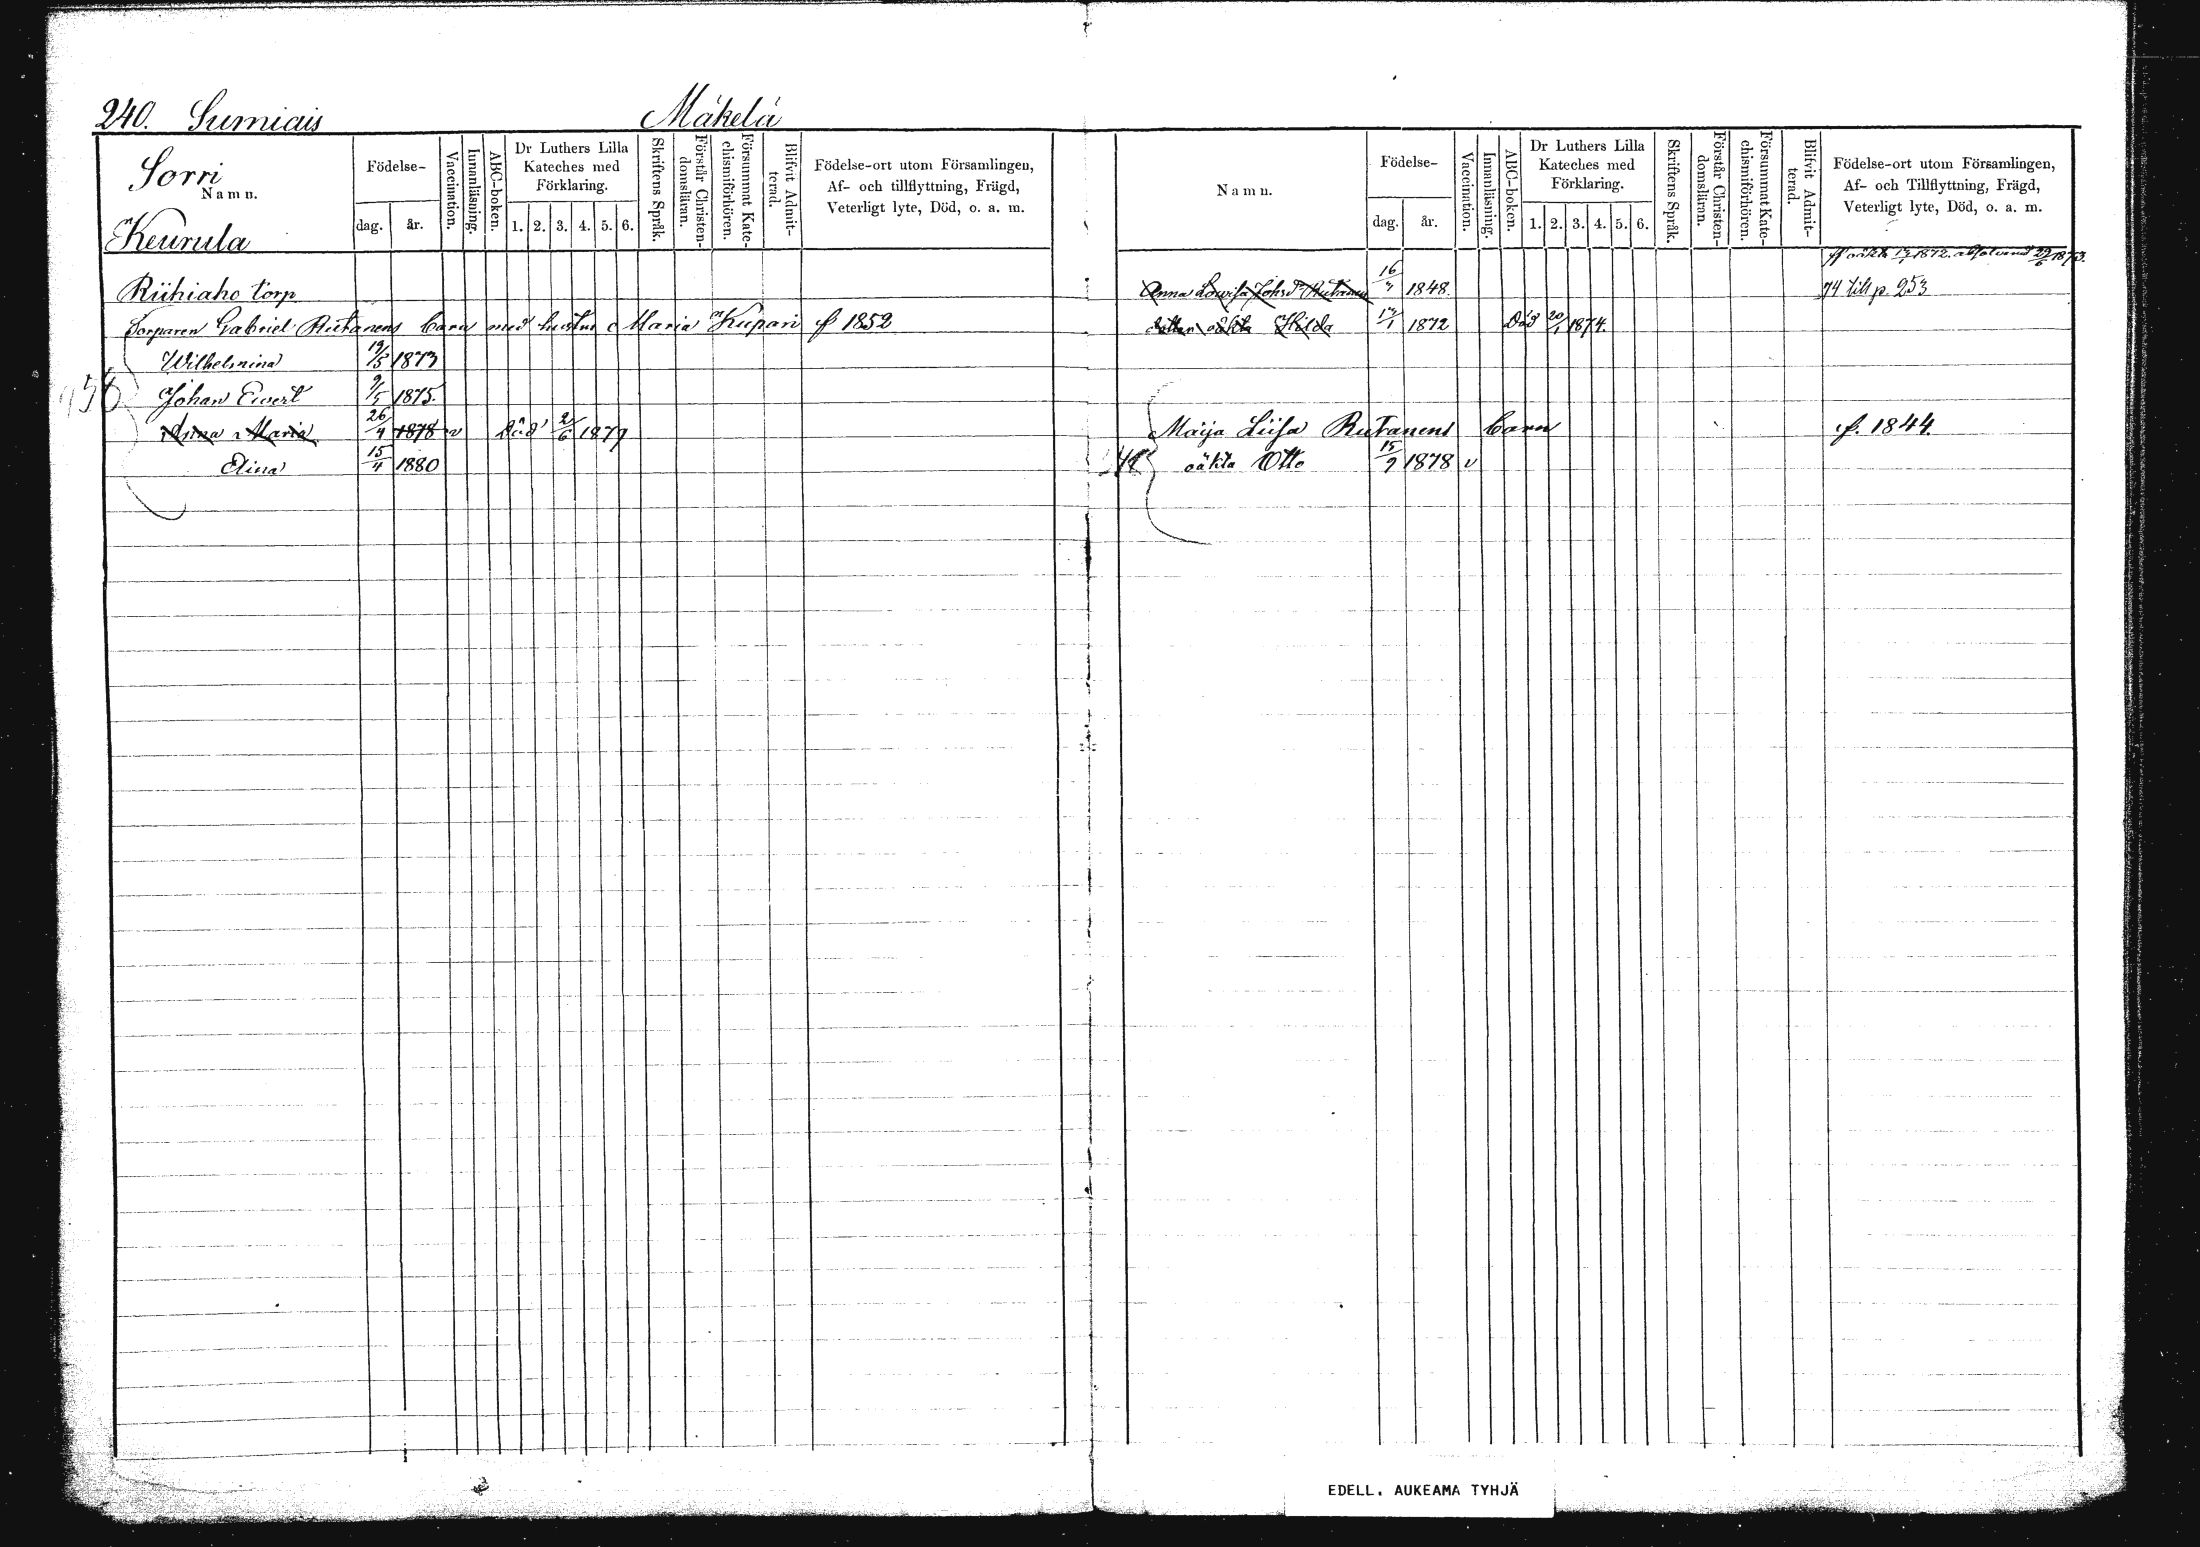 240. Sumiais Mäkelä
Sorri
Namn.
Keurula
Födelse-
dag. år.
Vaccination.
Innanläsning.
ABC-boken.
Dr Luthers Lilla
Kateches med
Förklaring.
1. 2. 3. 4. 5. 6.
Skriftens Språk.
Förstår Christen-
domsläran.
Försummat Kate-
chismiförhören.
Blifvit Admit-
terad.
Födelse-ort utom Församlingen,
Af- och tillflyttning, Frägd,
Veterligt lyte, Död, o. a. m.
Riihiaho torp
Torparen Gabriel Rutanens barn med hustru Maria Kupari f 1852
Wilhelmina 19/5 1873
Johan Evert 9/5 1875.
Anna Maria 26/4 1878 v Död 2/6 1879
Elina 15/4 1880
Namn.
Födelse-
dag. år.
Vaccination.
Innanläsning.
ABC-boken.
Dr Luthers Lilla
Kateches med
Förklaring.
1. 2. 3. 4. 5. 6.
Skriftens Språk.
Förstår Christen-
domsläran.
Försummat Kate-
chismiförhören.
Blifvit Admit-
terad.
Födelse-ort utom Församlingen,
Af- och Tillflyttning, Frägd,
Veterligt lyte, Död, o. a. m.
oäkta 17/1 1872. absolverad 29/6 1873.
Anna Lovisa Johsdr Rutanen 16/7 1848. 74 till p. 253
dotter oäkta Hilda 17/1 1872 Död 20/1 1874.
Maija Liisa Rutanens barn f. 1844.
oäkta Otto 15/9 1878 v
EDELL. AUKEAMA TYHJÄ